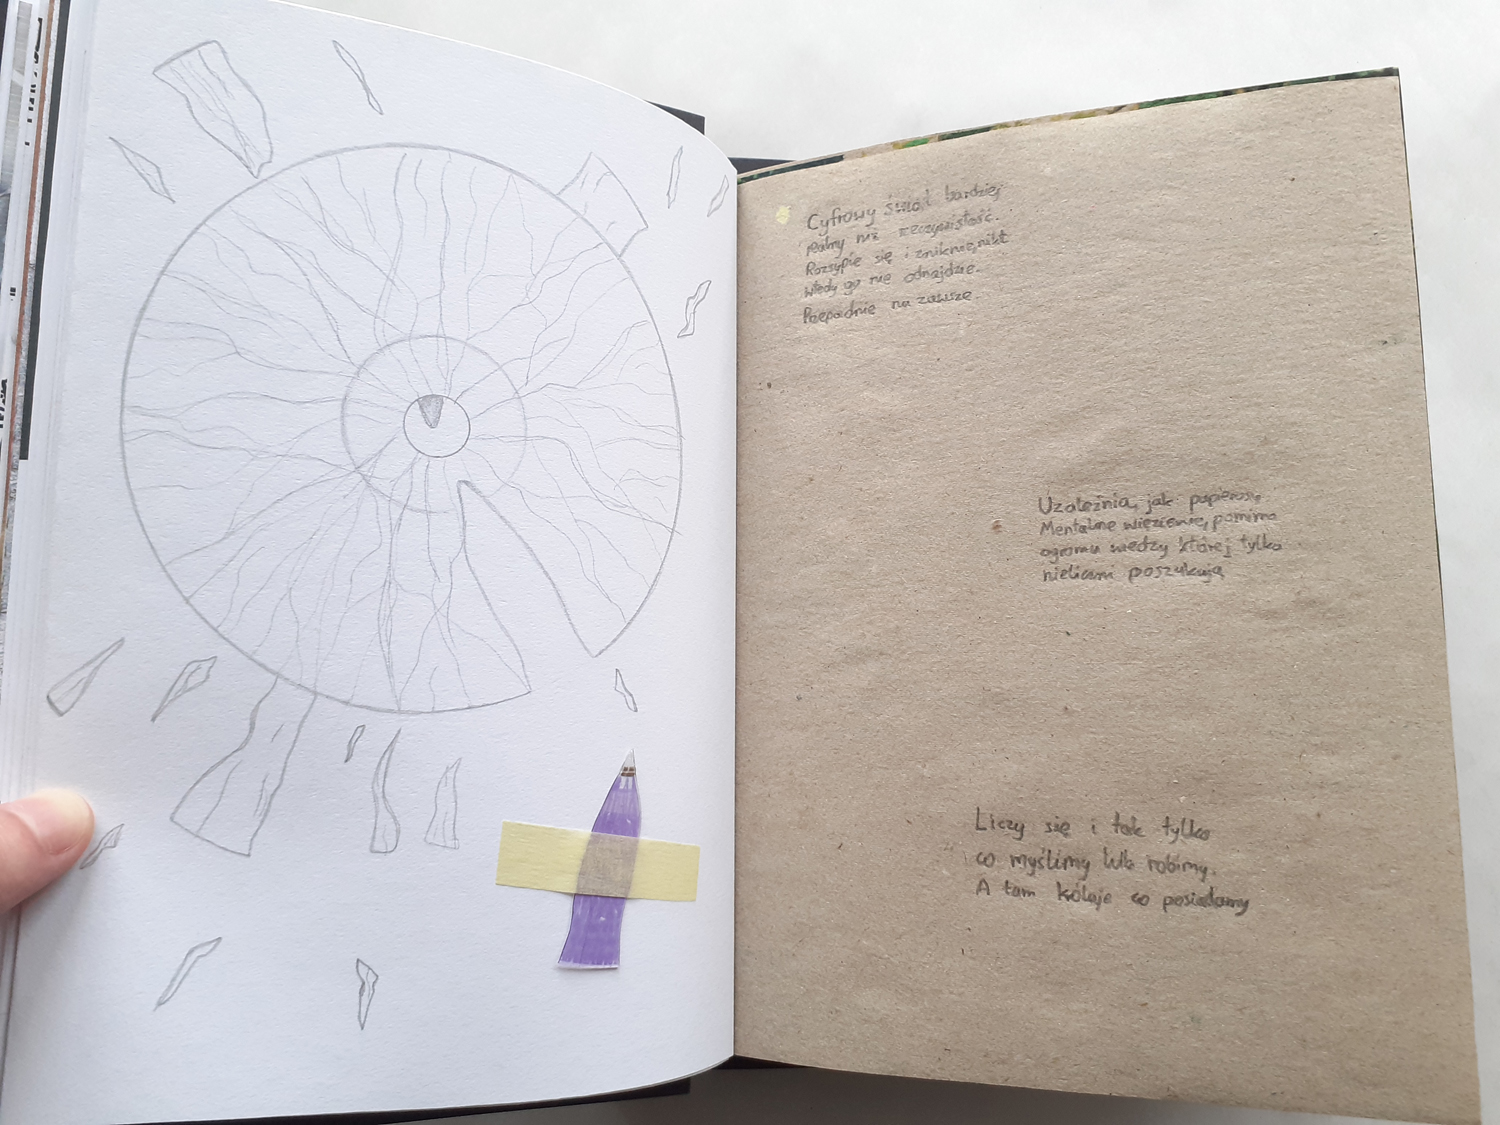 Cyfrowy świat bardziej
realny niż rzeczywistość.
Rozsypie się i zniknie, nikt
wtedy go nie odnajdzie.
Przepadnie na zawsze.
Uzależnia, jak papierosy
Mentalne więzienie, pomimo
ogromu wiedzy której tylko
nieliczni poszukują
Liczy się i tak tylko
co myślimy lub robimy.
A tam króluje co posiadamy